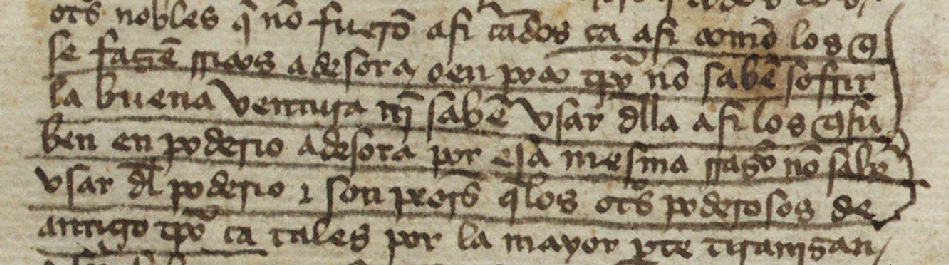 ots nobles q̃ nõ fuerõ asi criados ca asi commo los q̃
se fazẽ rricos a desora o en poco tpõ nõ sabẽ sofrir
la buena ventura nj̃ sabẽ vsar dlla asi los q̃ su
ben en poderio a desora por esa mesma rrazõ nõ sabẽ
vsar dl poderio τ son peors̃ q̃ los otrs̃ poderosos de
antigo tpõ ca tales por la mayor pte tiranizan